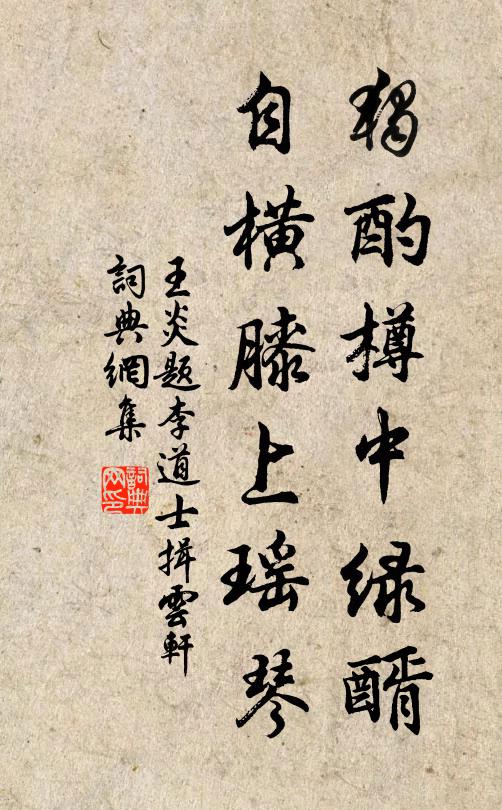 獨酌樽中绿醑
自横膝上瑶琴
王炎題李道士揖雲軒
詞典網集
詞典網印